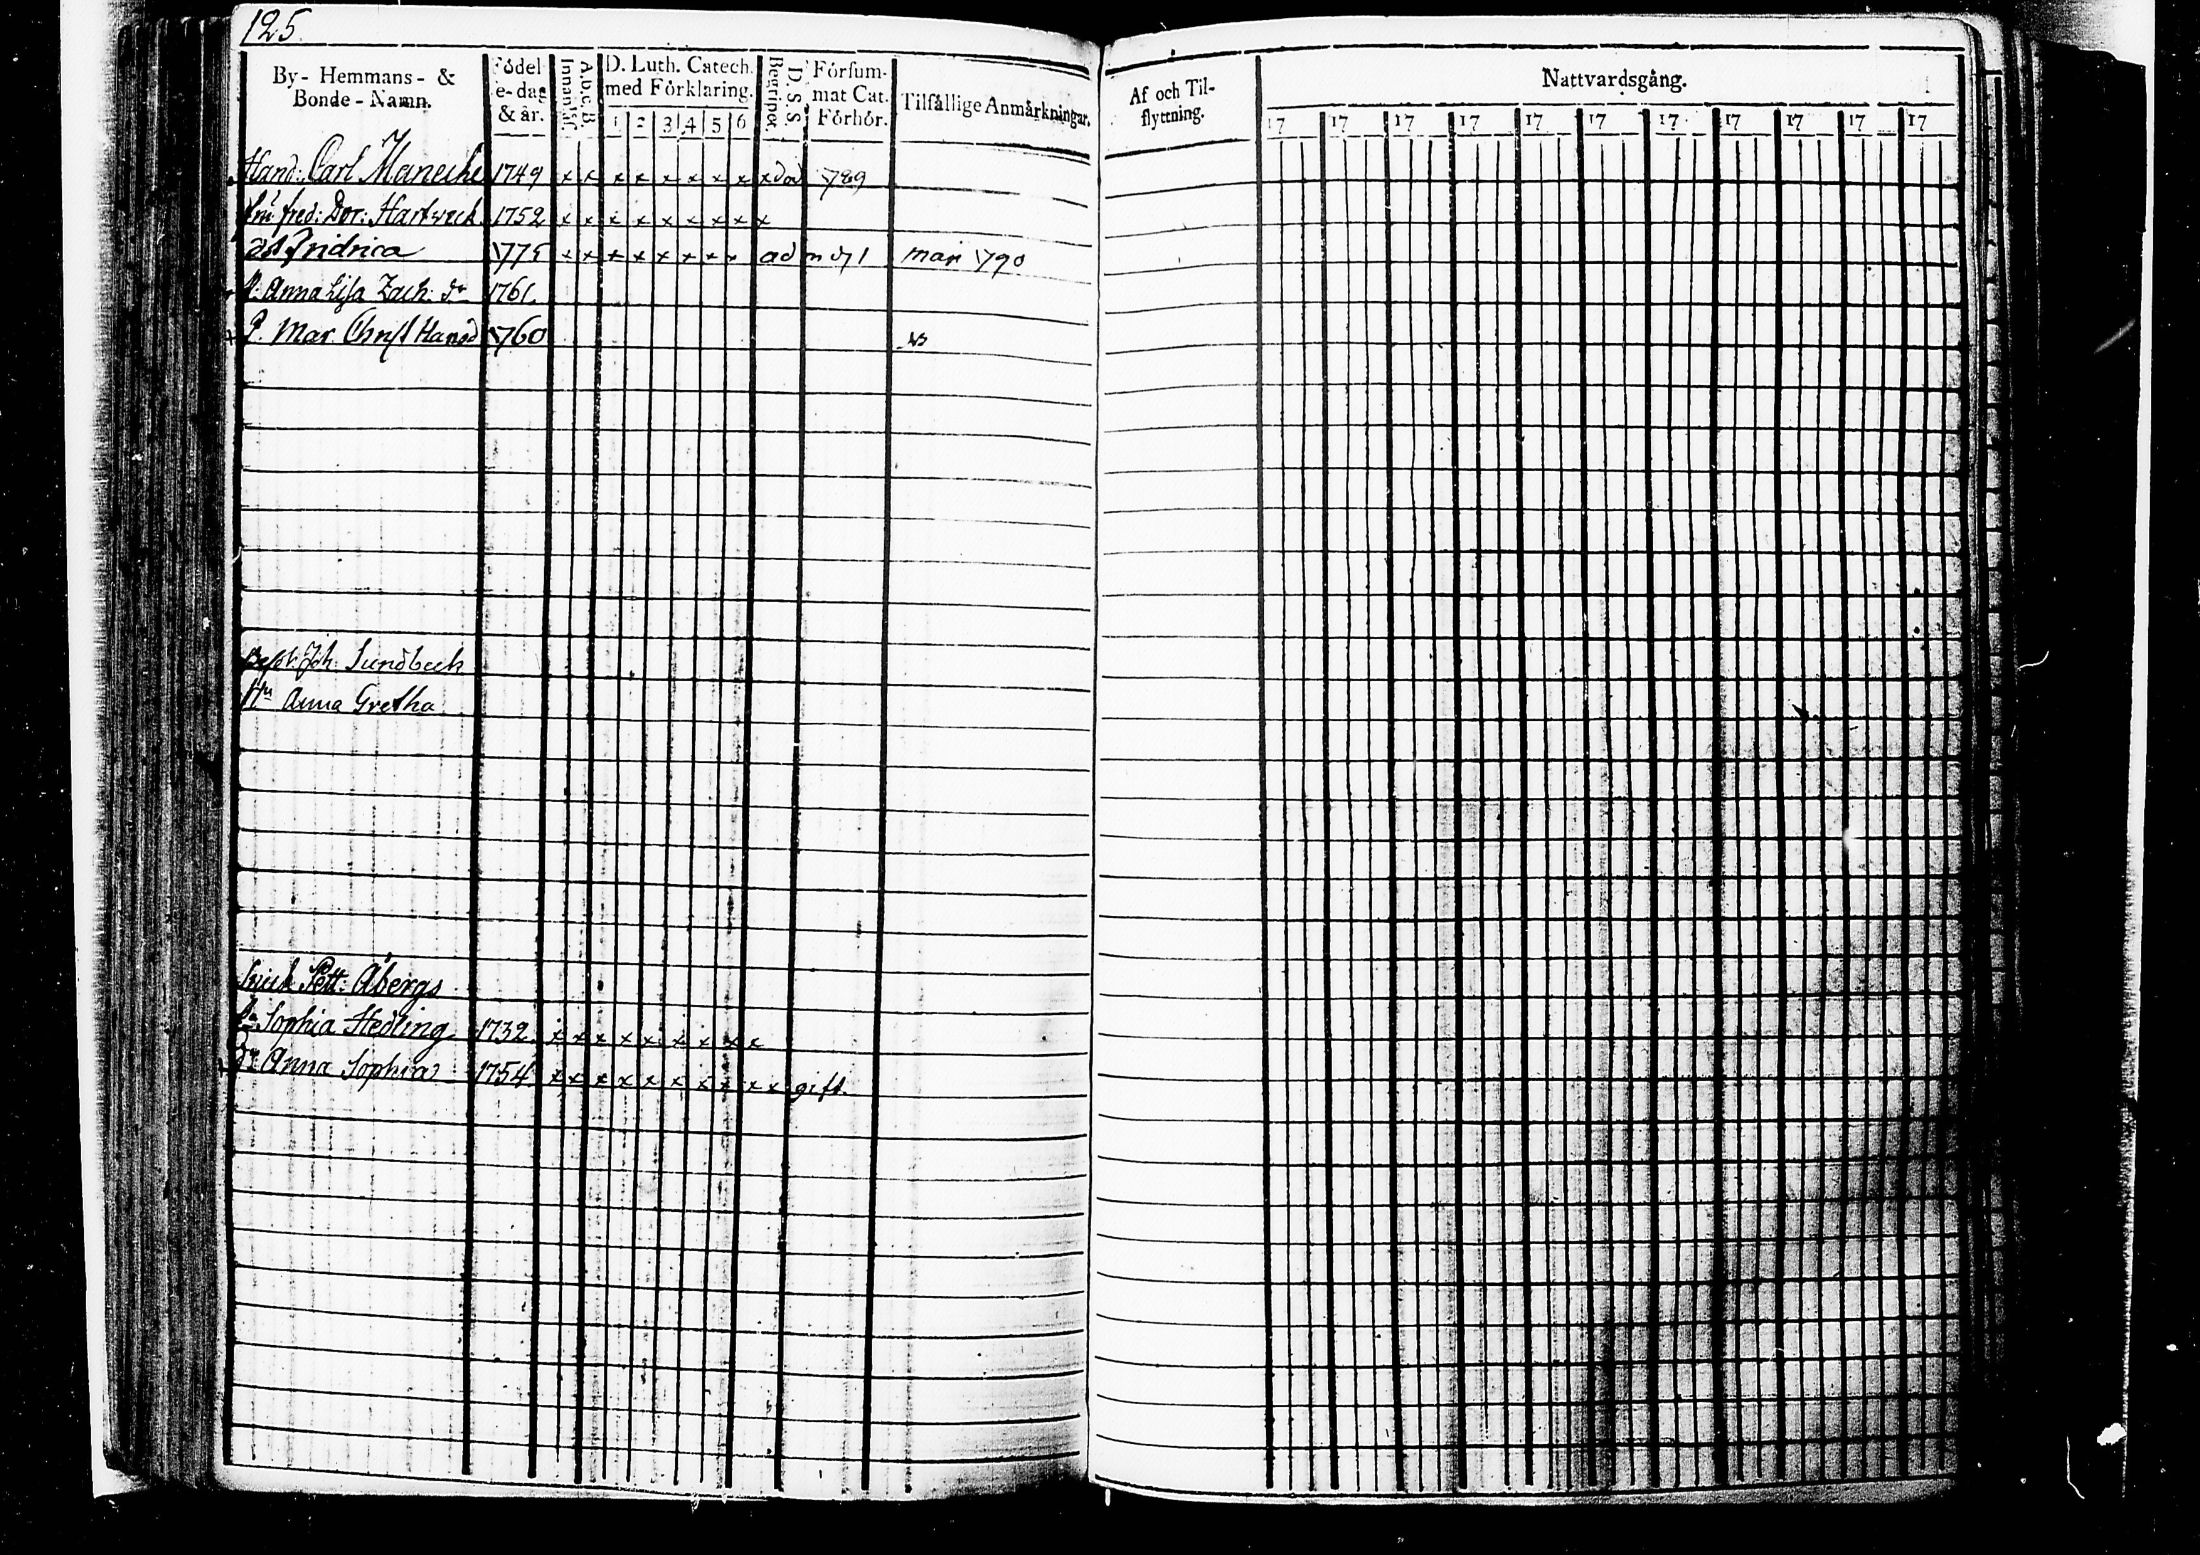 125.
By- Hemmans- & Bonde-Namn.
Födel e-dag & år.
Innantil.
A.b.c.B
D. Luth. Catech. med Förklaring.
1 2 3 4 5 6
Begripet.
D. S. S.
Försum- mat Cat. Förhör.
Tilfällige Anmärkningar.
Af och Til- flyttning.
Nattvardsgång.
17 17 17 17 17 17 17 17 17 17 17
Hand: Carl Manecke 1749 x x x x x x x x x död 1789
fru fred: Dor: Hartwick 1752 x x x x x x x x x
Fridrica 1775 x x x x x x x x adm d 1 maii 1790
P. Anna Lisa Zach: dr 1761.
P. Mar Christ Hansd 1760
Joh. Lundbeck
Hu Anna Gretha
Pett: Åbergs
Sophia Hedling 1732 x x x x x x x x x
Dr Anna Sophia 1754 x x x x x x x x x x gift.